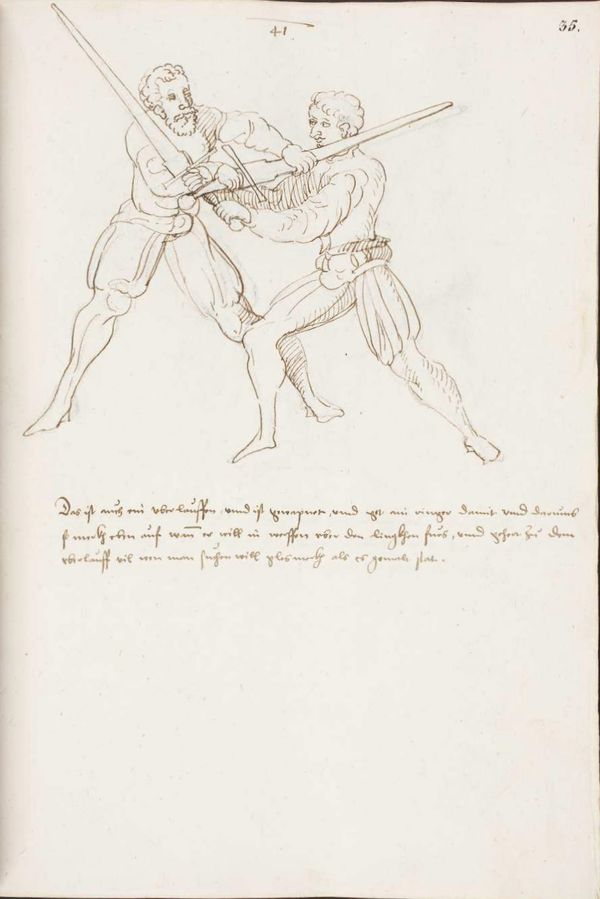 41
35.
Das ist aus ein uberlauffen, vnnd ist gwapnet, vnd get ain ringen damit vnnd daraus
so merckh eben auf wann er will in werffen vber den linckhen fues, vnnd gehort zu dem
uberlauff vil wen man suchen will als es gemalt stat.